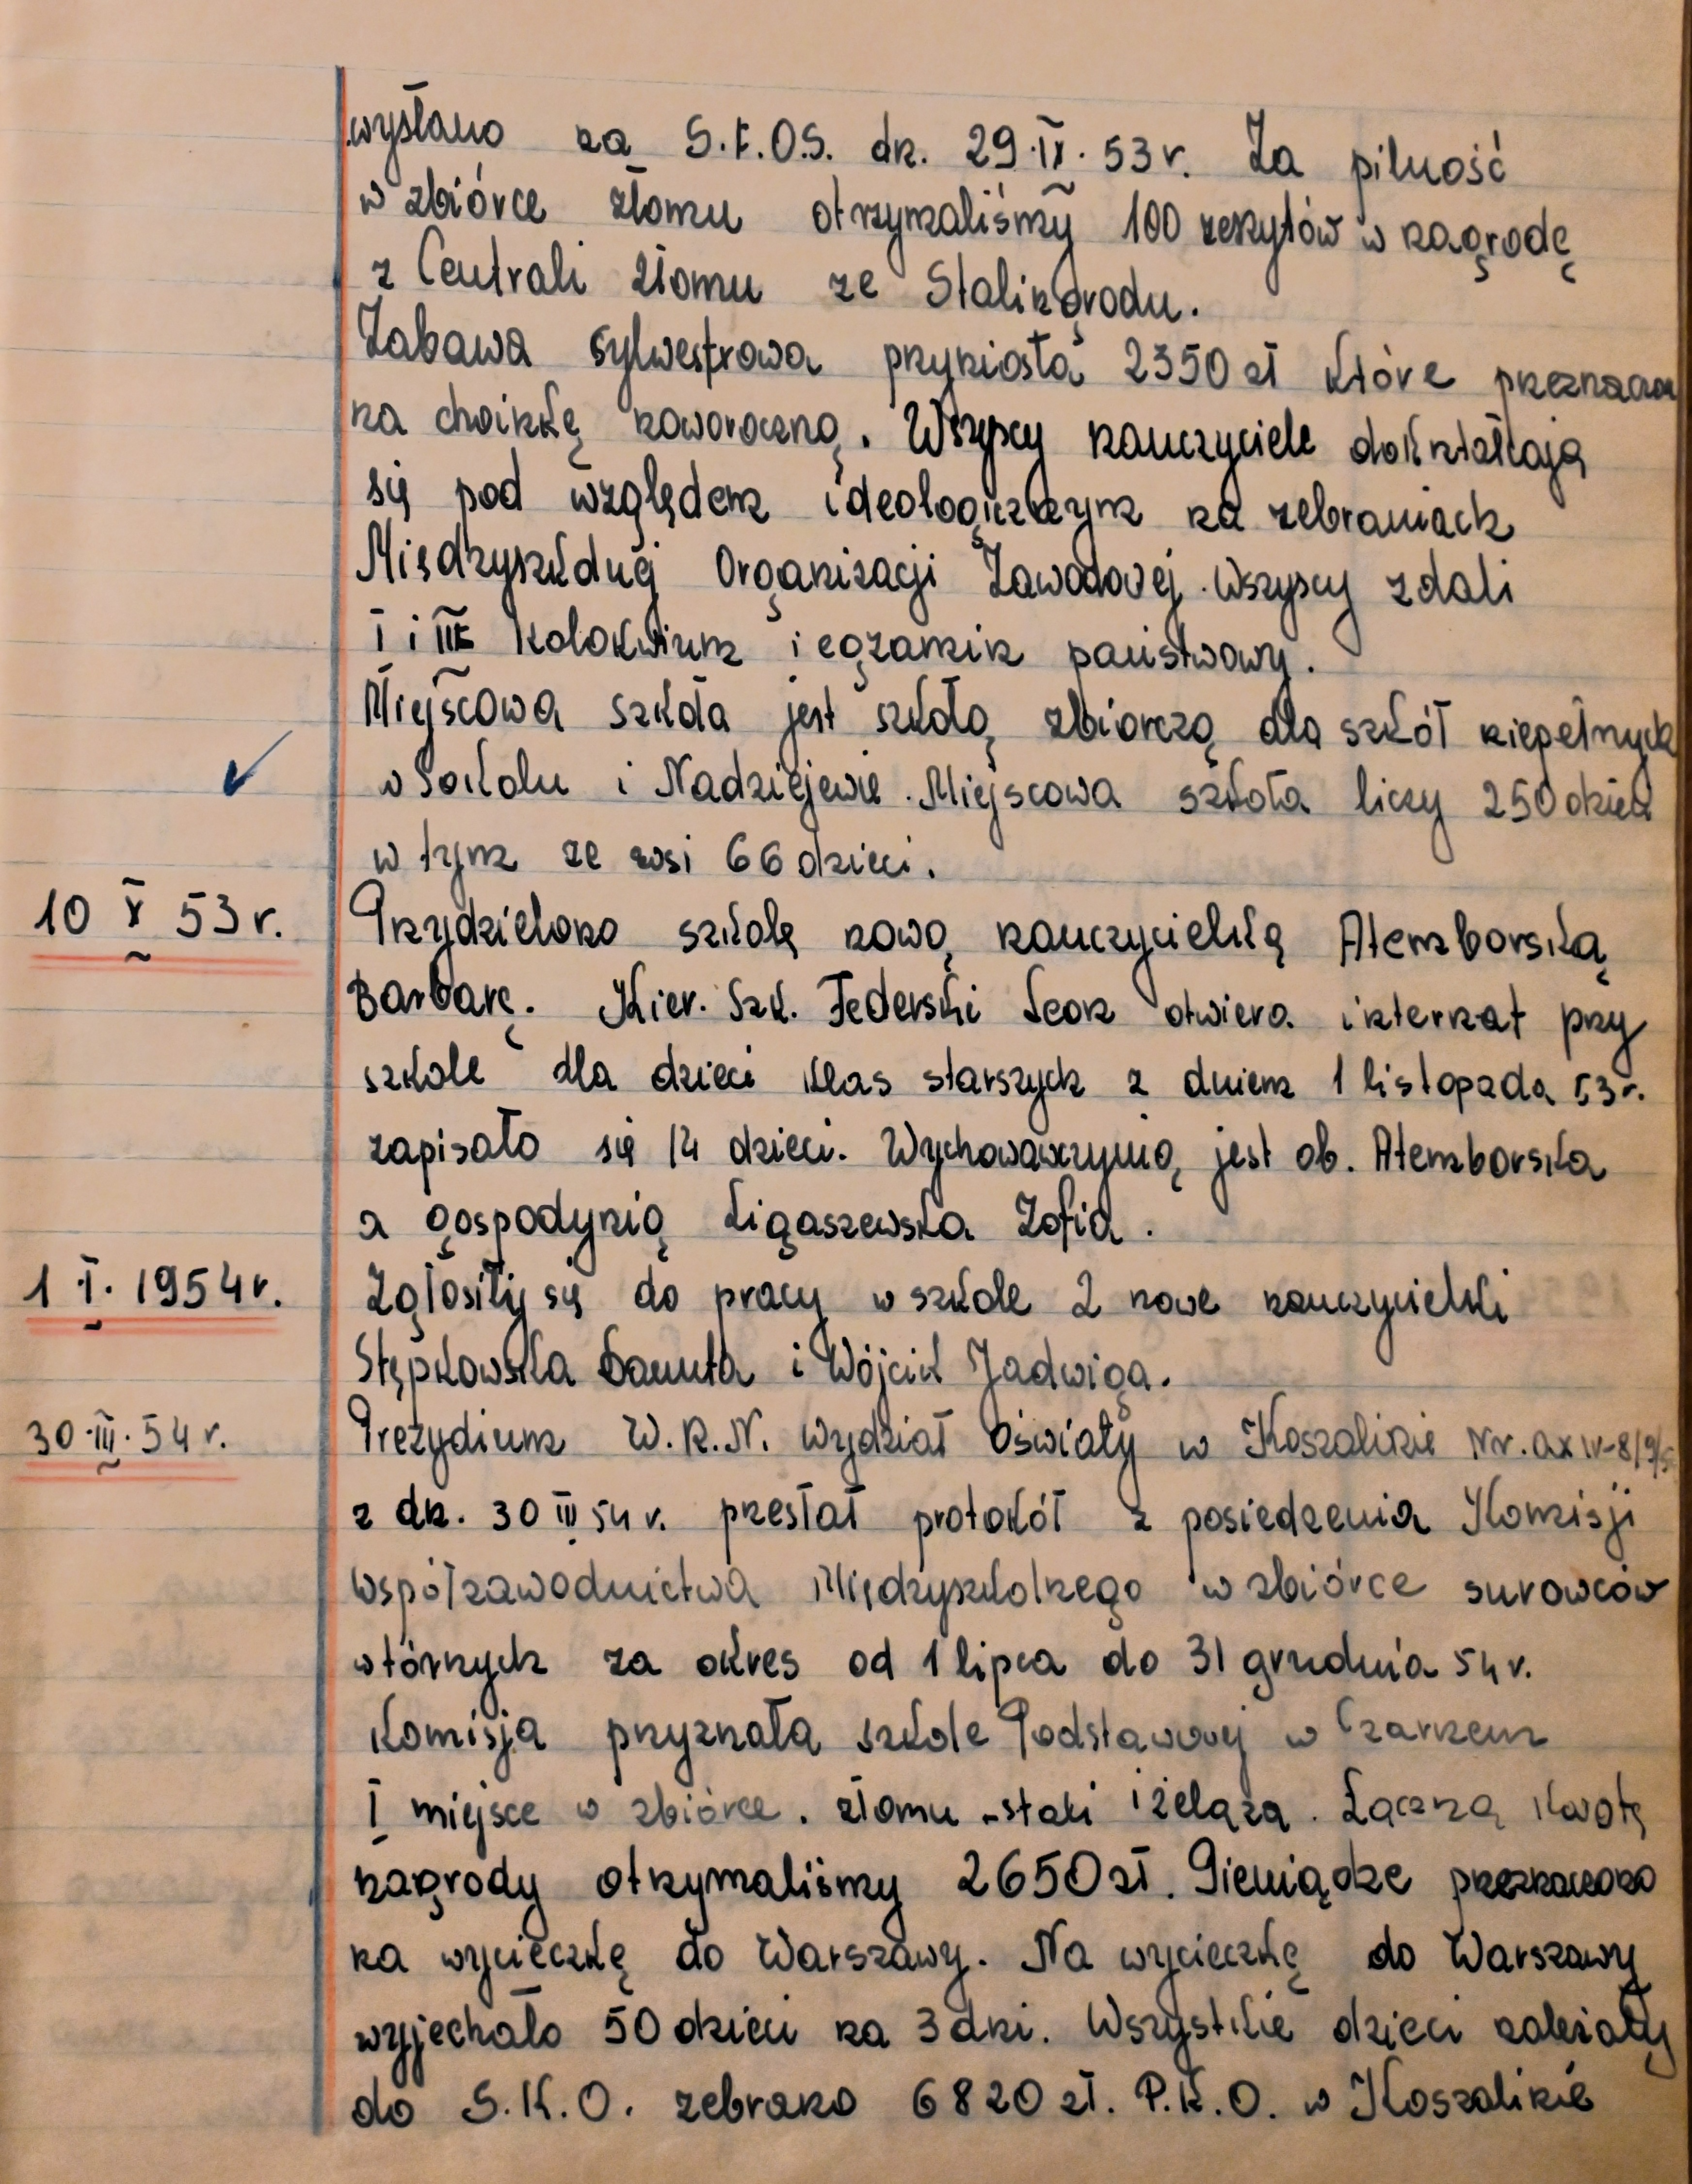 wysłano na S.F.O.S. dn. 29.IX.53 r. Za pilność
w zbiórce złomu otrzymaliśmy 100 zeszytów w nagrodę
z Centrali złomu ze Stalinogrodu.
Zabawa sylwestrowa przyniosła 2350 zł które
na choinkę noworoczną. Wszyscy nauczyciele dokształcają
się pod względem ideologicznym na zebraniach
Międzyszkolnej Organizacji Zawodowej. Wszyscy zdali
I i III kolokwium i egzamin państwowy.
Miejscowa szkoła jest szkołą zbiorczą dla szkół niepełnych
w Sokolu i Nadziejewie. Miejscowa szkoła liczy 250 dzieci
w tym ze wsi 66 dzieci.
10 X 53 r. Przydzielono szkole nową nauczycielką Atemborską
Barbarę. Kier. Szk. Federski Leon otwiera internat przy
szkole dla dzieci klas starszych z dniem 1 listopada 53 r.
zapisało się 14 dzieci. Wychowawczynią jest ob. Atemborska
a gospodynią Ligaszewska Zofia.
1 I. 1954 r. Zgłosiły się do pracy w szkole 2 nowe nauczycielki
Stępkowska Danuta i Wójcik Jadwiga.
30.III.54 r. Prezydium W.R.N. Wydział Oświaty w Koszalinie Nr.
z dn. 30 III 54 r. przesłał protokół z posiedzenia Komisji
Współzawodnictwa Międzyszkolnego w zbiórce surowców
wtórnych za okres od 1 lipca do 31 grudnia 54 r.
Komisja przyznała szkole Podstawowej w Czarnem
I miejsce w zbiórce. złomu - stali i żelaza. Łączną kwotę
nagrody otrzymaliśmy 2650 zł. Pieniądze przeznaczono
na wycieczkę do Warszawy. Na wycieczkę do Warszawy
wyjechało 50 dzieci na 3 dni. Wszystkie dzieci należały
do S.K.O. zebrano 6820 zł. P.K.O. w Koszalinie